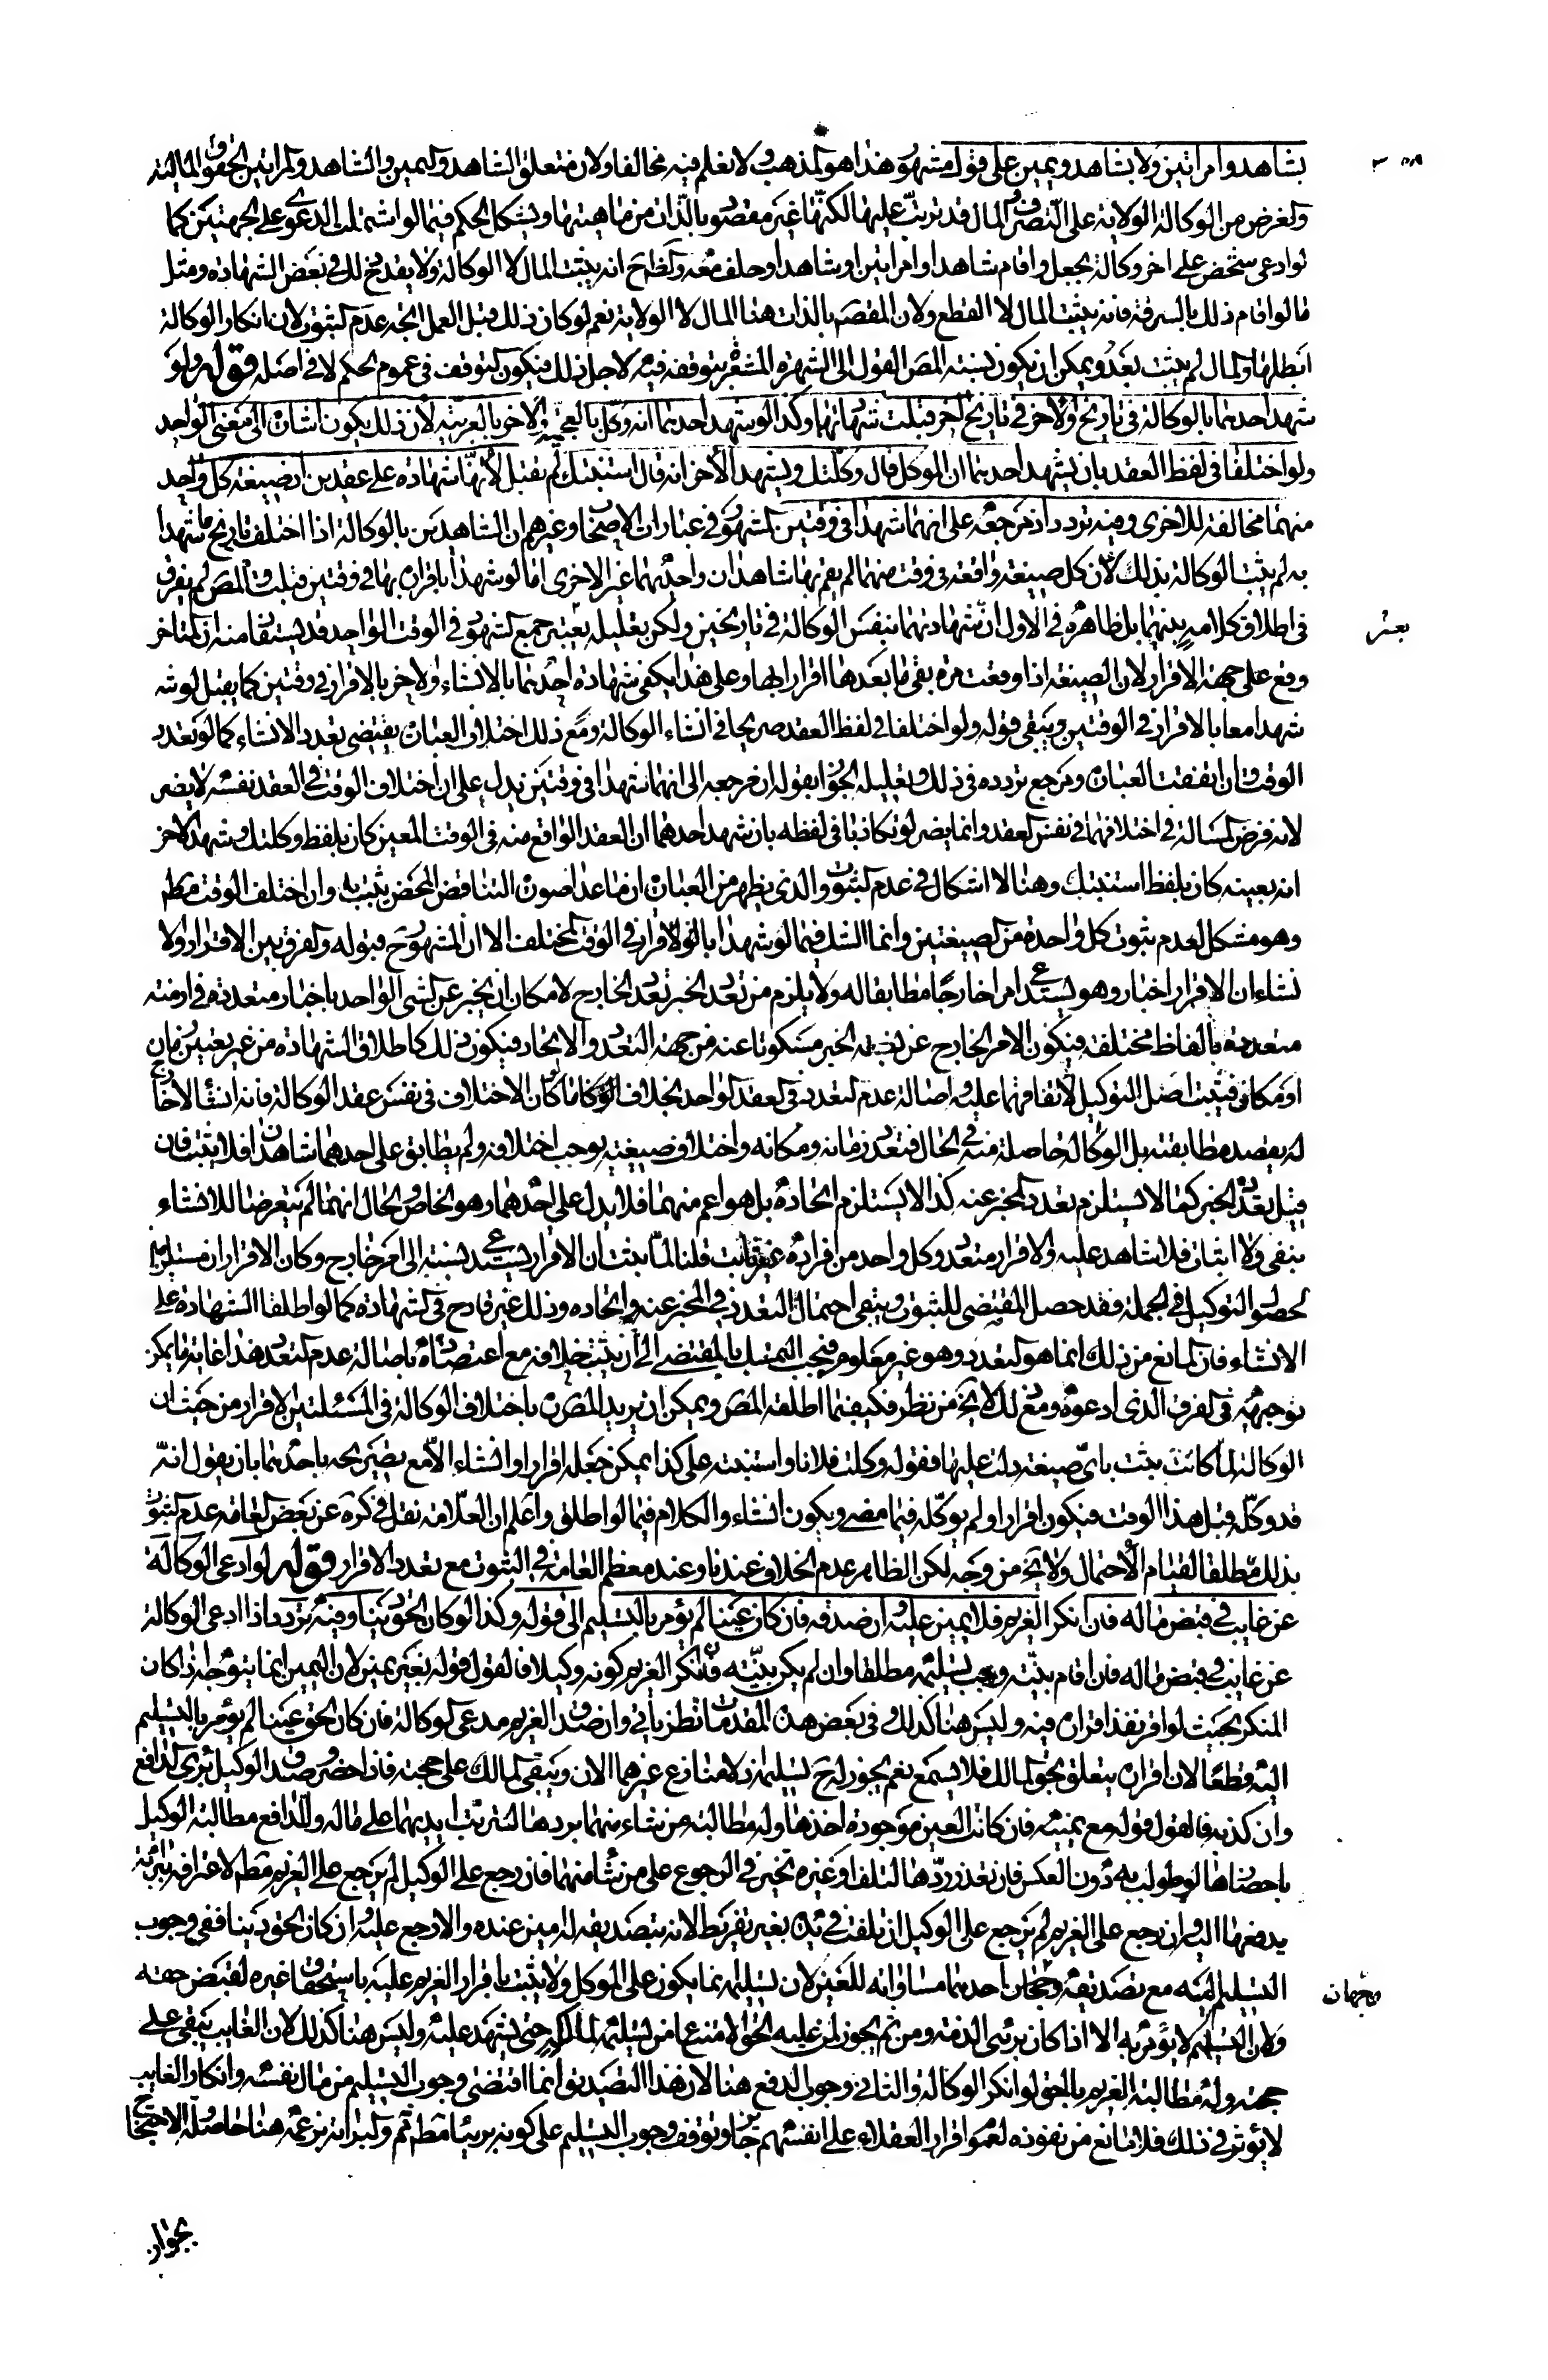 بشاهد وامراتين ولا بشاهد ويمين على قول مشهور هذا هو المذهب ولا نعلم فيه مخالفا ولان متعلق الشاهد واليمين والشاهد والمراتين الحقوق المالية
والغرض من الوكالة الولاية على التصرف والمال قد يترتب عليها لكنها غير مقصود بالذات من ماهيتها ويشكل الحكم فيما لو اشتملت الدعوى على الجهتين كما
لو ادعى شخص على اخر وكالة بجعل واقام شاهدا وامراتين او شاهدا وحلف معه والظاهر ح انه يثبت المال لا الوكالة ولا يقدح ذلك في تبعض الشهادة ومثل
ما لو اقام ذلك بالسرقة فانه يثبت المال لا القطع ولان المقصود بالذات هنا المال لا الولاية نعم لو كان ذلك قبل العمل اتجه عدم الثبوت لان انكار الوكالة
ابطلها والمال لم يثبت بعد ويمكن ان يكون نسبته المص القول الى الشهرة المشعر بتوقفه فيه لاجل ذلك فيكون التوقف في عموم الحكم لا في اصله قوله ولو
شهد احدهما بالوكالة في تاريخ والاخر في تاريخ اخر قبلت شهادتهما وكذا لو شهد احدهما انه وكل بالعجمية والاخر بالعربية لان ذلك يكون اشارة الى المعنى الواحد
ولو اختلفا في لفظ العقد بان يشهد احدهما ان الموكل قال وكلتك ويشهد الاخر انه قال استنبتك لم تقبل لانها شهادة على عقدين اذ صيغة كل واحد
منهما مخالفة للاخرى وفيه تردد اذ مرجعه على انهما شهدا في وقتين المشهور في عبارات الاصحاب وغيرهم ان الشاهدين بالوكالة اذا اختلف تاريخ ما شهدا
به لم يثبت الوكالة بذلك لان كل صيغة واقعة في وقت منهما لم يقم بها شاهدان واحدهما غير الاخرى اما لو شهدا باقراره بها في وقتين قبلت والمص لم يفرق
في اطلاق كلامه بينهما بل ظاهره في الاول ان شهادتهما بنفس الوكالة في تاريخين ولكن تعليله بعسر جمع الشهود في الوقت الواحد قد يستفاد منه ان المتاخر
بعسر
وقع على جهة الاقرار لان الصيغة اذا وقعت مرة بقى ما بعدها اقرارا بها وعلى هذا يكفي شهادة احدهما بالانشاء والاخر بالاقرار في وقتين كما يقبل لو شه
شهدا معا بالاقرار في الوقتين ويبقى قوله ولو اختلفا في لفظ العقد صريحا في انشاء الوكالة ومع ذلك اختلاف العبارة يقتضي تعدد الانشاء كما لو تعدد
الوقت وان اتفقت العبارة ومرجع تردده في ذلك وتعليله الجواز بقوله ان مرجعه الى انهما شهدا في وقتين يدل على ان اختلاف الوقت في العقد نفسه لا يضر
لانه فرض المسالة في اختلافهما في نفس العقد وانما يضر لو تكاذبا في لفظه بان شهد احدهما ان العقد الواقع منه في الوقت المعين كان بلفظ وكلتك وشهد الاخر
انه بعينه كان بلفظ استنبتك وهنا لا اشكال في عدم الثبوت والذي يظهر من العبارة ان ما عدا صورة التناقض المحض يثبت به وان اختلف الوقت مطم
وهو مشكل لعدم ثبوت كل واحدة من الصيغتين وانما الشك فيما لو شهدا بالاقرار في الوقت المختلف الا ان المشهور ح قبوله والفرق بين الاقرار والا
نشاء ان الاقرار اخبار وهو يستدعي امرا خارجا مطابقا له ولا يلزم من تعدد الخبر تعدد الخارج لامكان ان يخبر عن الشي الواحد باخبار متعددة في ازمنة
متعددة بالفاظ مختلفة فيكون الامر الخارج عن الخبر مسكوتا عنه من جهة التعدد والاتحاد فيكون ذلك كاطلاق الشهادة من غير تعيين زمان
او مكان فيثبت اصل التوكيل لاتفاقهما عليه واصالة عدم التعدد في العقد الواحد بخلاف ما كان الاختلاف في نفس عقد الوكالة فانه انشاء لا خارج
له يقصد مطابقته بل الوكالة حاصلة منه في الحال فتعدد زمانه ومكانه واختلاف صيغته يوجب اختلافه ولم يطابق على احدهما شاهدان فلا يثبت فان
قيل تعدد الخبر كما لا يستلزم تعدد المخبر عنه كذا لا يستلزم اتحاده بل هو اعم منهما فلا يدل على احدهما وهو الخاص والحال انهما لم يتعرضا للانشاء
بنفي ولا اثبات فلا شاهد عليه والاقرار متعدد وكل واحد من افراده غير ثابت قلنا لما ثبت ان الاقرار يستدعي نسبته الى امر خارج وكان الاقراران مستلزما
لحصول التوكيل في الجملة فقد حصل المقتضي للثبوت ويبقى احتمال التعدد في المخبر عنه واتحاده وذلك غير قادح في الشهادة كما لو اطلقا الشهادة على
الانشاء فان المانع من ذلك انما هو التعدد وهو غير معلوم فيجب التمسك بالمقتضي الى ان يثبت خلافه مع اعتضاده باصالة عدم التعدد هذا غاية ما يمكن
توجيهه في الفرق الذي ادعوه ومع ذلك لا يخ من نظر فكيف ما اطلقه المص ويمكن ان يريد المص باختلاف الوكالة في المسئلتين الاقرار من حيث ان
الوكالة لما كانت يثبت باي صيغة دلت عليها فقوله وكلت فلانا واستنبته على كذا يمكن جعله اقرارا وانشاء الا مع تصريحه باحدهما بان يقول انه
قد وكله قبل هذا الوقت فيكون اقرارا ولم يوكله فيما مضى ويكون انشاء والكلام فيما لو اطلق واعلم ان العلامة نقل في كره عن بعض العامة عدم الثبوت
بذلك مطلقا لقيام الاحتمال ولا يخ من وجه لكن الظاهر عدم الخلاف عندنا وعند معظم العامة في الثبوت مع تعدد الاقرار قوله لو ادعى الوكالة
عن غايب في قبض ماله فان انكر الغريم فلا يمين عليه وان صدقه فان كان عينا لم يؤمر بالتسليم الى قوله وكذا لو كان الحق دينا وفيه تردد اذا ادعى الوكالة
عن غايب في قبض ماله فان اقام بينة وجب تسليمه مطلقا وان لم يكن بينة فانكر الغريم كونه وكيلا فالقول قوله بغير يمين لان اليمين انما يتوجه اذا كان
المنكر بحيث لو اقر نفذ اقراره فيه وليس هنا كذلك وفي بعض هذه المقدمات نظر ياتي وان صدق الغريم مدعي الوكالة فان كان الحق عينا لم يؤمر بالتسليم
اليه قطعا لان اقراره يتعلق بحق المالك فلا يسمع نعم يجوز له ح تسليمه اذ لا منازع غيرهما الان ويبقى المالك على حجته فاذا حضر وصدق الوكيل برئ الدافع
وان كذبه فالقول قوله مع يمينه فان كانت العين موجودة اخذها وله مطالبة من شاء منهما بردها لترتب ايديهما على ماله وللدافع مطالبة الوكيل
باحضارها لو طولب به دون العكس فان تعذر ردها لتلف او غيره تخير في الرجوع على من شاء منهما فان رجع على الوكيل لم يرجع على الغريم مطم لاعترافه ببرائته
بدفعها اليه وان رجع على الغريم لم يرجع على الوكيل ان تلفت في يده بغير تفريط لانه بتصديقه له امين عنده والا رجع عليه وان كان الحق دينا ففي وجوب
التسليم اليه مع تصديقه وجهان احدهما مساواته للعين لان تسليمه انما يكون على الموكل ولا يثبت باقرار الغريم عليه باستحقاق غيره لقبض حقه
وجهان
ولان التسليم لا يؤمر به الا اذا كان برئ الذمة ومن ثم يجوز لمن عليه الحق الامتناع من تسليمه لمالكه حتى يشهد عليه وليس هنا كذلك لان الغايب يبقى على
حجته وله مطالبة الغريم بالحق لو انكر الوكالة والثاني وجوب الدفع هنا لان هذا التصديق انما اقتضى وجوب التسليم من مال نفسه وانكار الغايب
لا يؤثر في ذلك فلا مانع من نفوذه لعموم اقرار العقلاء على انفسهم جايز وتوقف وجوب التسليم على كونه مبرئا مطم ثم والبرائة بزعمه هنا حاصلة الاحتجاج
بجواز